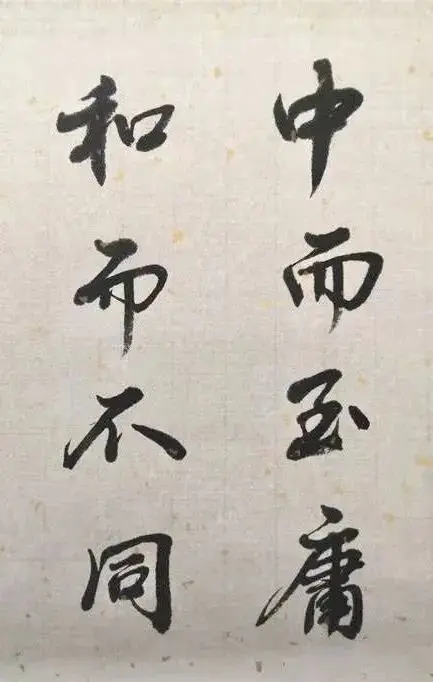 中而至庸
和而不同